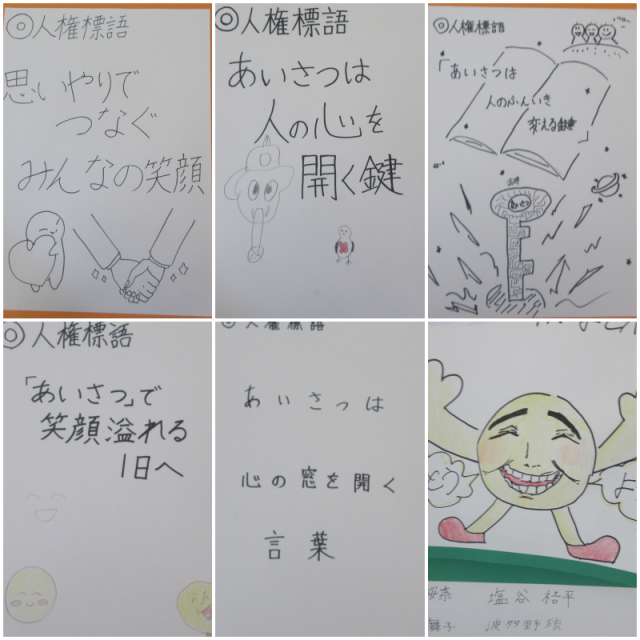 ◎人権標語
思いやりで
つなぐ
みんなの笑顔
◎人権標語
あいさつは
人の心を
開く鍵
◎人権標語
「あいさつは
人のふんいき
変える鍵」
あいさつ
◎人権標語
「あいさつ」で
笑顔溢れる
1日へ
◎人権標語
あいさつは
心の窓を開く
言葉
塩谷 桔平
舞子 波多野